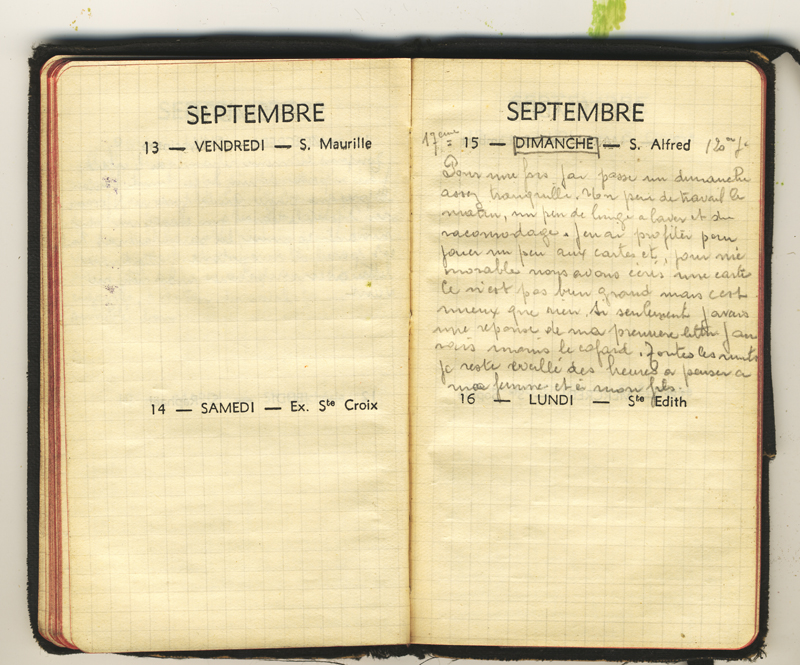 SEPTEMBRE
13 — VENDREDI — S. Maurille
14 — SAMEDI — Ex. Ste Croix
SEPTEMBRE
17eme 15 — DIMANCHE — S. Alfred 120me j.
Pour une fois j'ai passé un dimanche
assez tranquille. Un peu de travail le
matin, un peu de linge a laver et du
racomodage. J'en ai profiter pour
jouer un peu aux cartes et, jour mé
morable nous avons écris une carte
Ce n'est pas bien grand mais c'est
mieux que rien. Si seulement j'avais
une reponse de ma premiere lettre j'au
rais moins le cafard. Toutes les nuits
je reste éveillé des heures a penser a
ma femme et à mon fils.
16 — LUNDI — Ste Edith